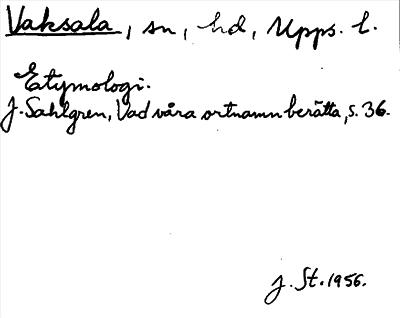 Vaksala, sn, hd, Upps. l.
Etymologi.
J. Sahlgren, Vad våra ortnamn berätta, s. 36.
J. St. 1956.